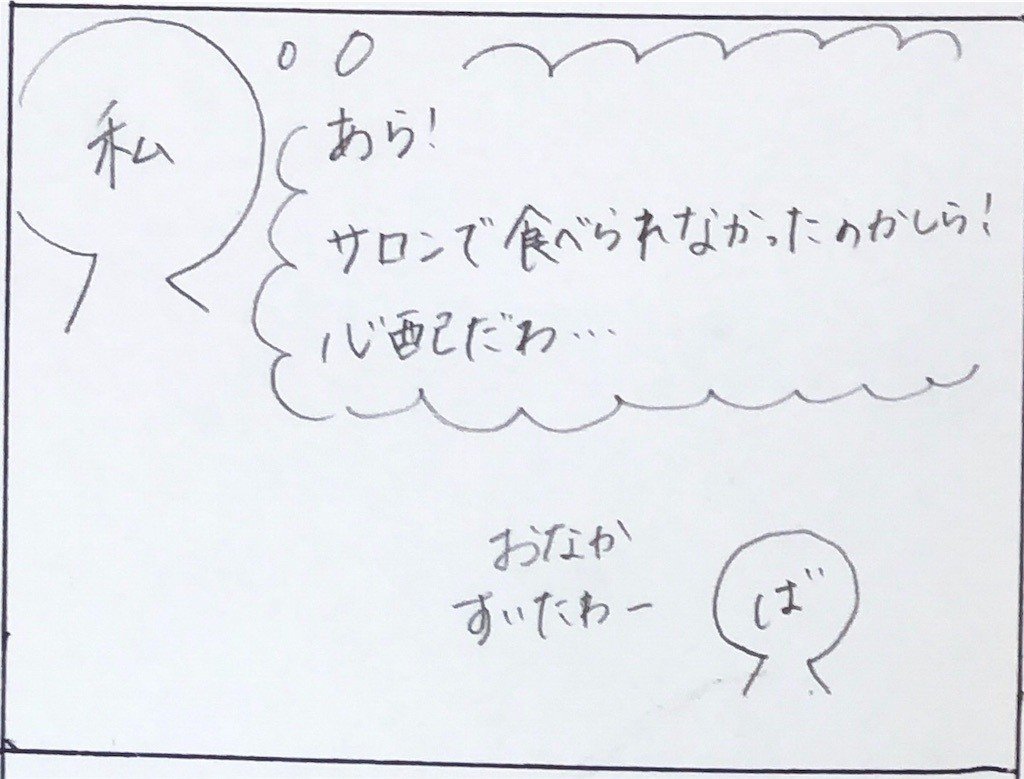 私
あら!
サロンで食べられなかったのかしら!
心配だわ…
おなか
すいたわー
ば